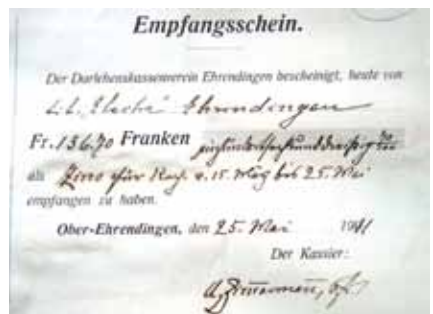 Empfangsschein.
Der Darlehenskassenverein Ehrendingen bescheinigt, heute von
Ehrendingen
Fr. 136.70 Franken
als Zins für v. 15. bis 25. Mai
empfangen zu haben.
Ober-Ehrendingen, den 25. Mai 1911
Der Kassier:
Zimmermann,